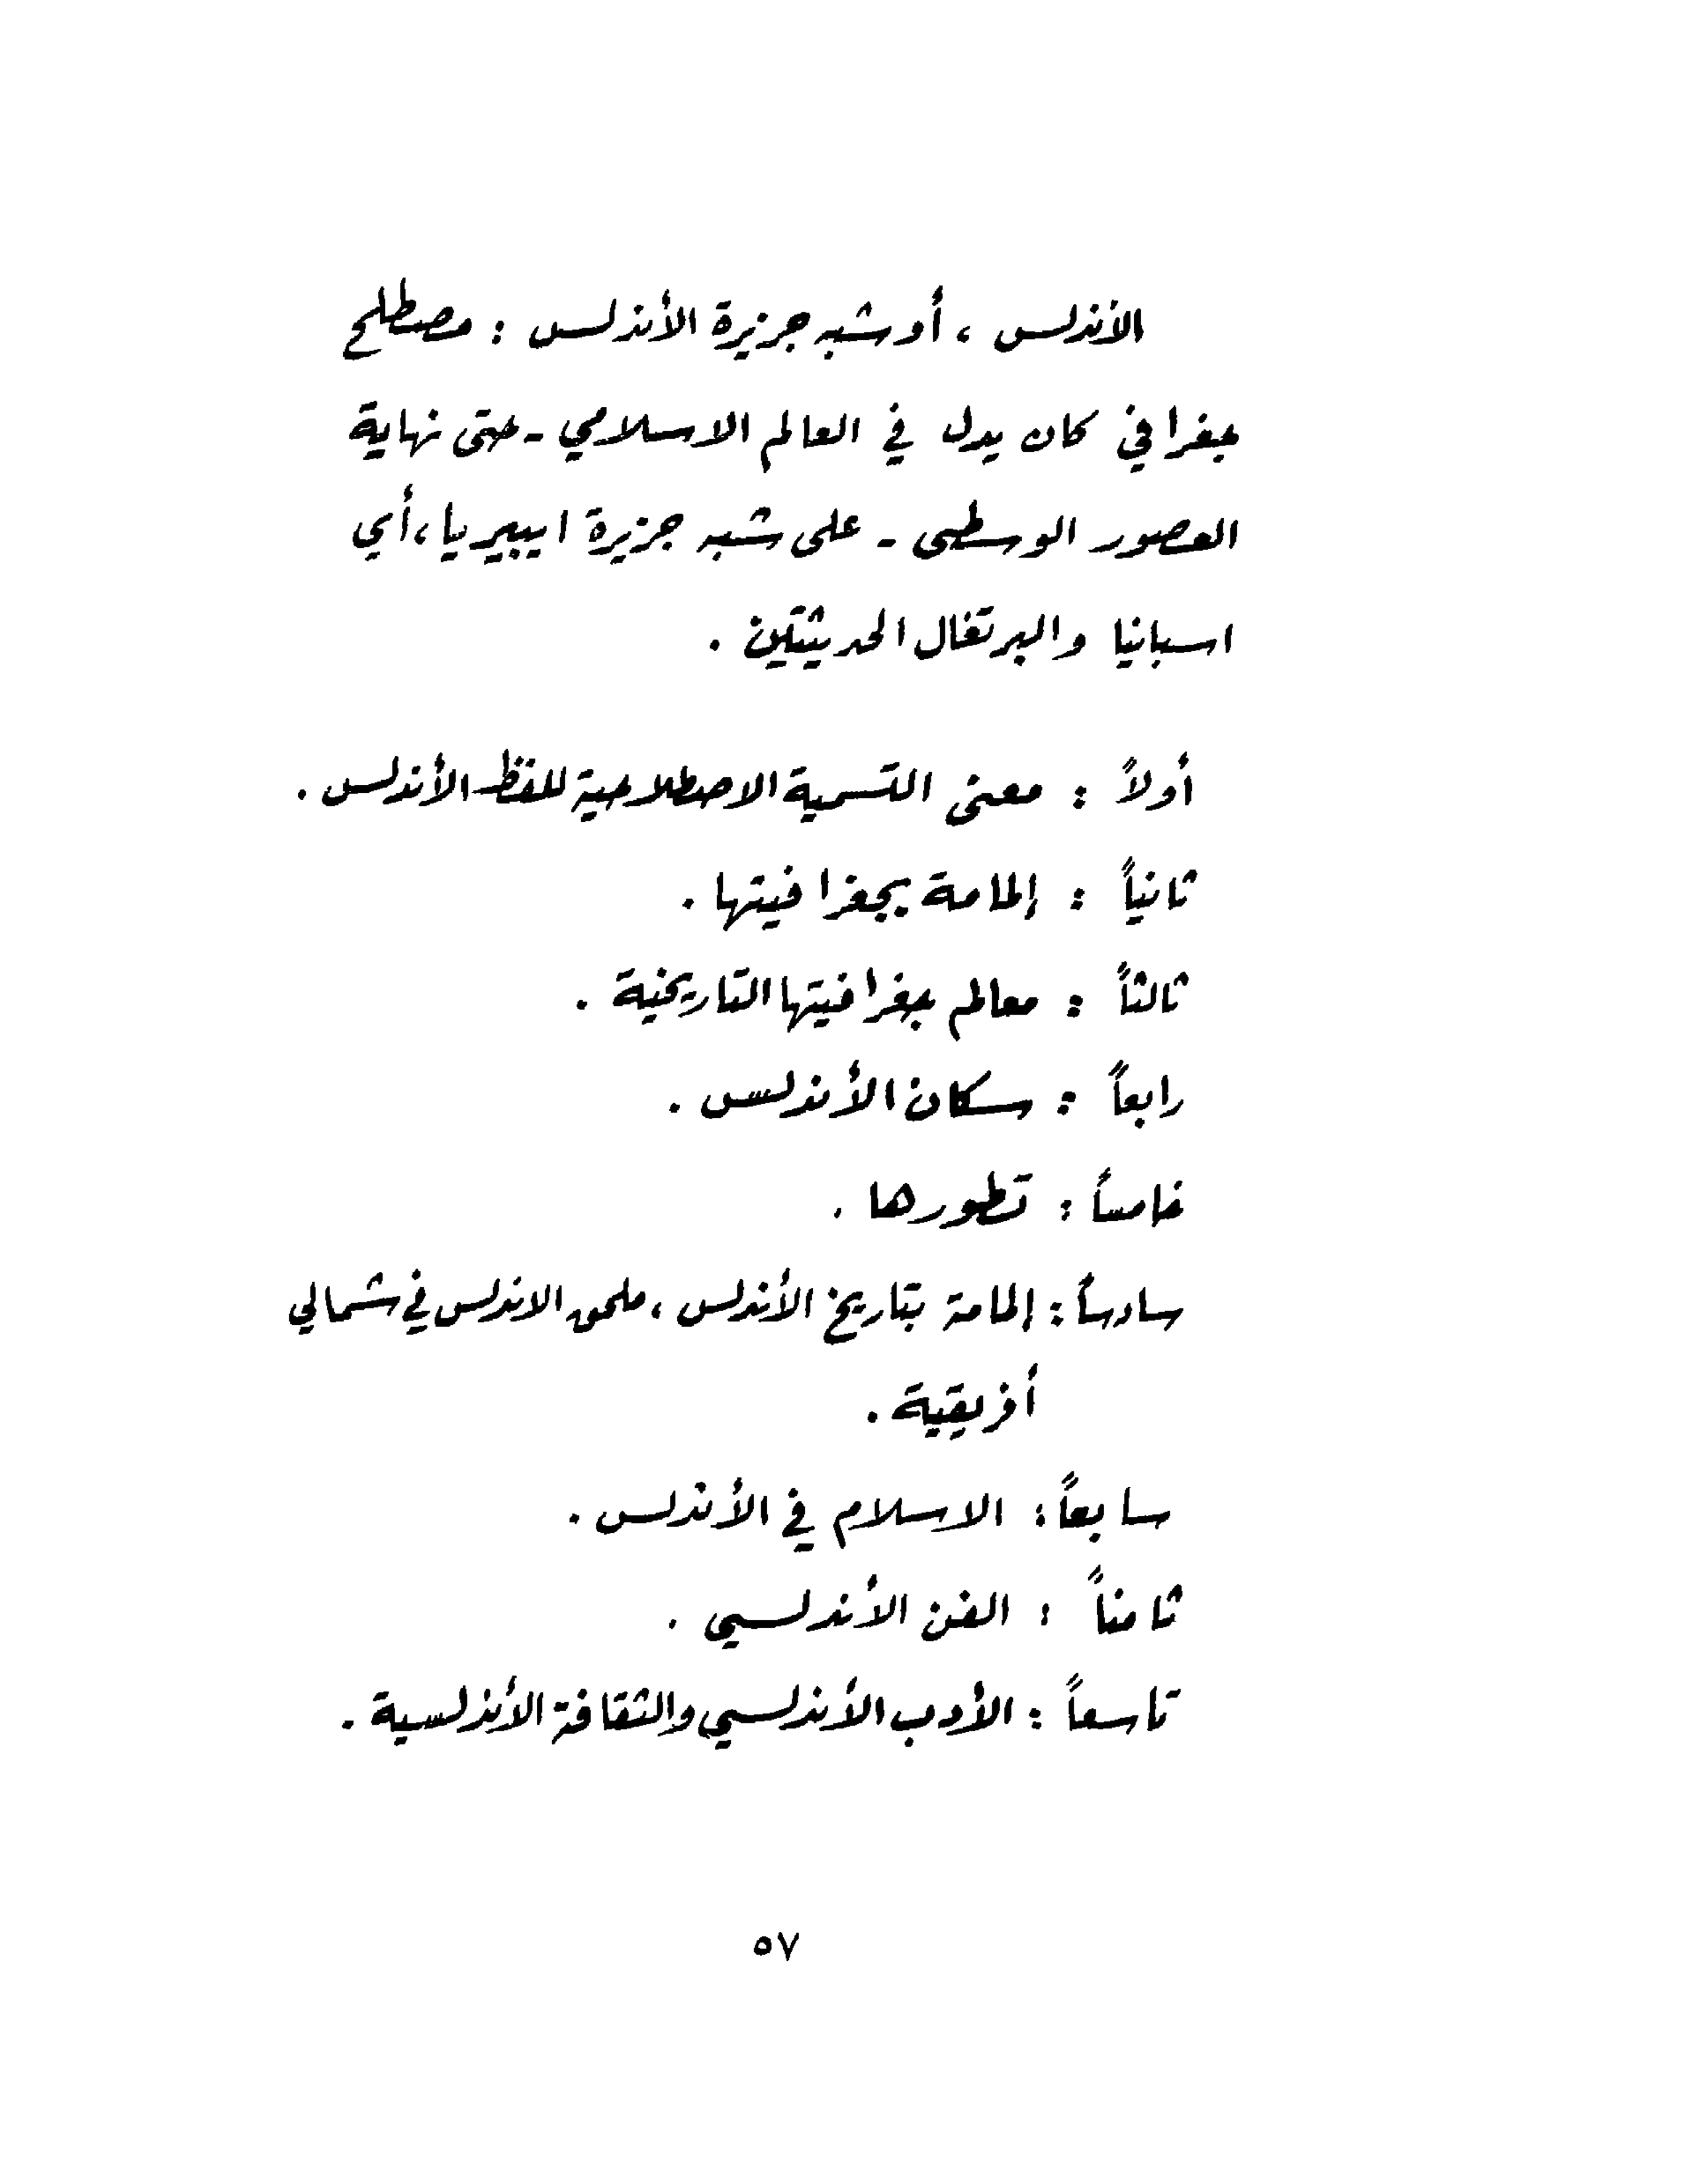 الأندلس ، أو شبه جزيرة الأندلس : مصطلح
جغرافي كان يدل في العالم الاسلامي - حتى نهاية
العصور الوسطى - على شبه جزيرة ايبيريا ، أي
اسبانيا والبرتغال الحديثتين .
أولاً : معنى التسمية الاصطلاحية للفظ الأندلس .
ثانياً : إلمامة بجغرافيتها .
ثالثاً : معالم جغرافيتها التاريخية .
رابعاً : سكان الأندلس .
خامساً : تطورها .
سادساً : إلمامة بتاريخ الأندلس ، ملحق الاندلس في شمالي
أفريقية .
سابعاً : الاسلام في الأندلس .
ثامناً : الفن الأندلسي .
تاسعاً : الأدب الأندلسي والثقافة الأندلسية .
٥٧